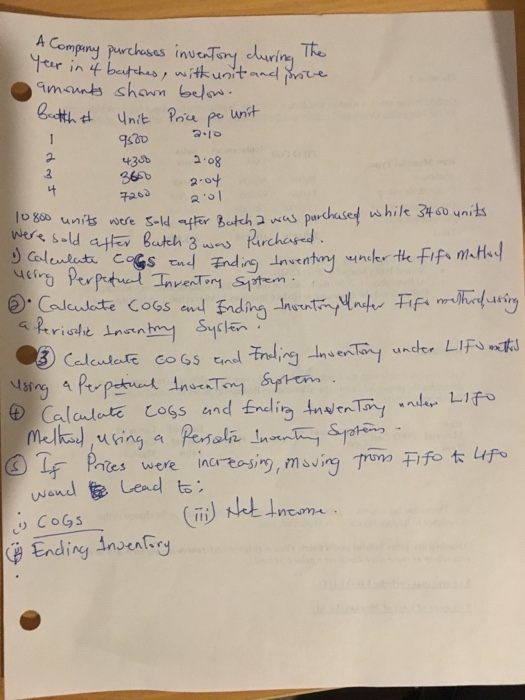 A Company purchases inventory during The
Year in 4 batches, with unit and price
amounts shown below.
Batch # Unit Price per unit
1 9500 2.10
2 4300 2.08
3 3600 2.04
4 7200 2.01
10800 units were sold after Batch 2 was purchased while 3400 units
were sold after Batch 3 was Purchased.
1) Calculate COGS and Ending Inventory under the Fifo Method
using Perpetual Inventory System.
2). Calculate COGS and Ending Inventory Under Fifo method, using
a Periodic Inventory System.
3) Calculate COGS and Ending Inventory under LIFO method
using a Perpetual Inventory System.
4) Calculate COGS and Ending Inventory under LIFO
Method, using a Periodic Inventory System.
5) If Prices were increasing, moving from FIFO to LIFO
would Lead to:
i) COGS (iii) Net Income.
ii) Ending Inventory